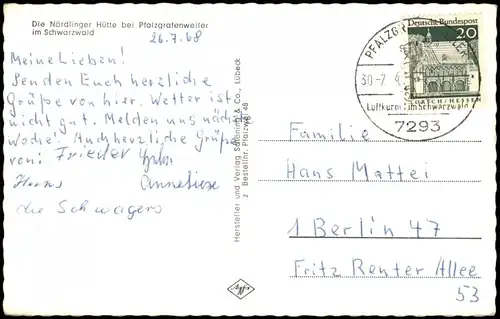 Die Nördlinger Hütte bei Pfalzgrafenweiler
im Schwarzwald
26.7.68
Meine Lieben!
Senden Euch herzliche
Grüße von hier. Wetter ist
nicht gut. Melden uns nächste
Woche! Auch herzliche Grüße
von: Frieder
Hans Anneliese
die Schwagers
Hersteller und Verlag Schöning & Co., Lübeck
Bestellnr. Pfalzwei 48
Deutsche Bundespost
20
LORSCH/HESSEN
30-7
Luftkurort im Schwarzwald
7293
Familie
Hans Mattei
1 Berlin 47
Fritz Reuter Allee
53
Agfa